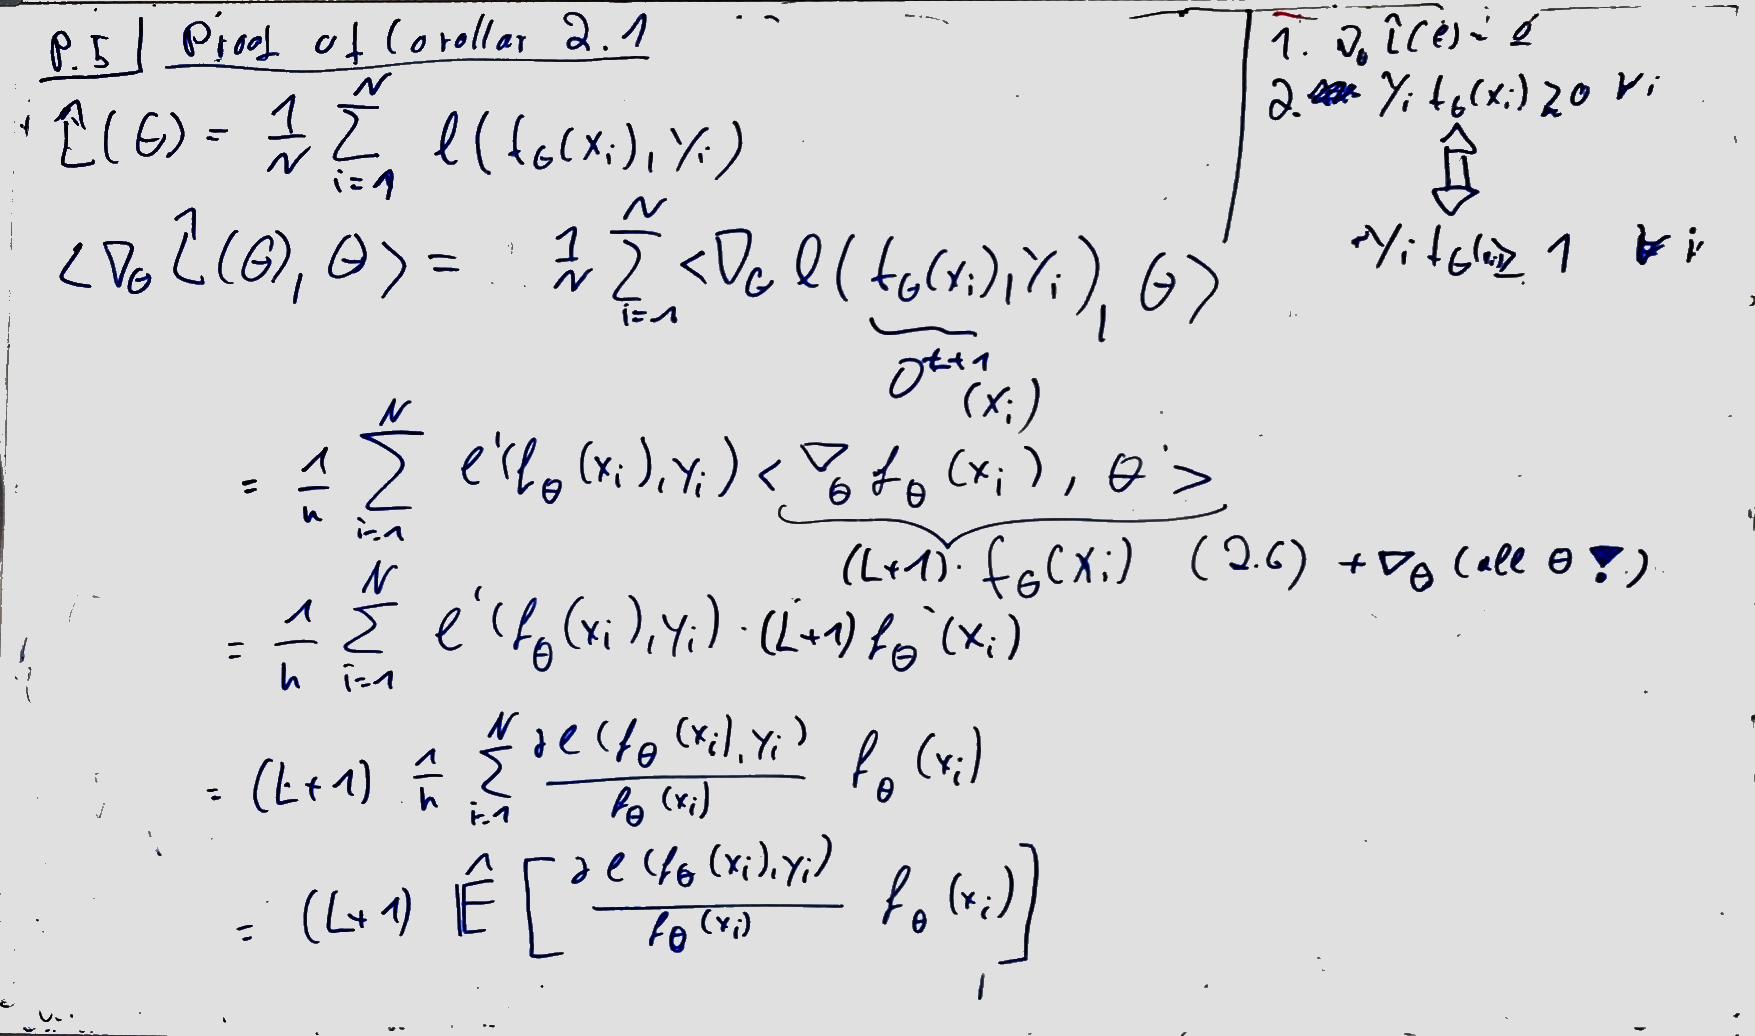 P.5 | Proof of Corollar 2.1
L̂(θ) = 1/N ∑_{i=1}^{N} l(f_θ(x_i), y_i)
<∇_θ L̂(θ), θ> = 1/N ∑_{i=1}^{N} <∇_θ l(f_θ(x_i), y_i), θ>
O^{L+1}(x_i)
= 1/n ∑_{i=1}^{N} l'(f_θ(x_i), y_i) <∇_θ f_θ(x_i), θ>
(L+1)· f_θ(x_i) (2.6) + ∇_θ (all θ !)
= 1/n ∑_{i=1}^{N} l'(f_θ(x_i), y_i) · (L+1) f_θ(x_i)
= (L+1) 1/n ∑_{i=1}^{N} ∂l(f_θ(x_i), y_i) / f_θ(x_i) f_θ(x_i)
= (L+1) Ê [ ∂l(f_θ(x_i), y_i) / f_θ(x_i) f_θ(x_i) ]
2. y_i f_θ(x_i) ≥ 0 ∀i
⇕
y_i f_θ(x_i) ≥ 1 ∀ i